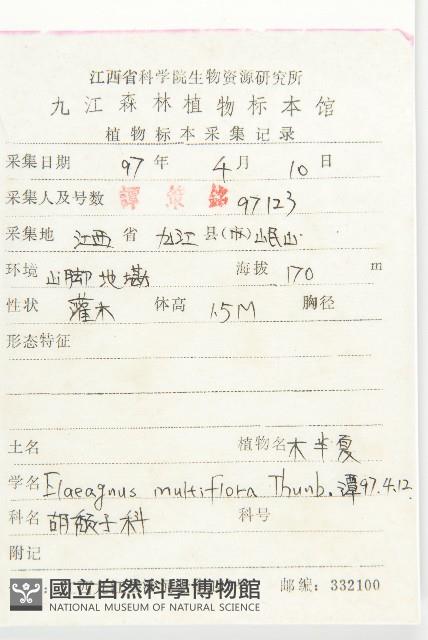 江西省科学院生物资源研究所
九江森林植物标本馆
植物标本采集记录
采集日期 97 年 4 月 10 日
采集人及号数 譚策銘 97123
采集地 江西 省 九江 县(市) 岷山
环境 山脚地墈 海拔 170 m
性状 灌木 体高 1.5M 胸径
形态特征
土名 植物名 木半夏
学名 Elaeagnus multiflora Thunb. 譚97.4.12
科名 胡颓子科 科号
附记
邮编: 332100
國立自然科學博物館
NATIONAL MUSEUM OF NATURAL SCIENCE